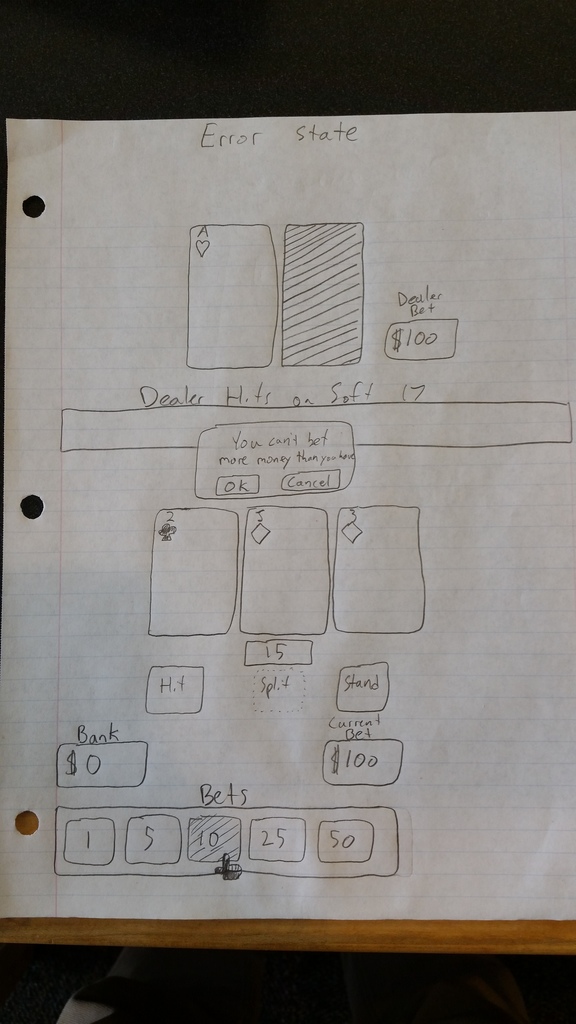 Error state
A
Dealer
Bet
$100
Dealer Hits on Soft 17
You can't bet
more money than you have
OK Cancel
2 J 3
15
Hit Split Stand
Bank
$0
Current
Bet
$100
Bets
1 5 10 25 50